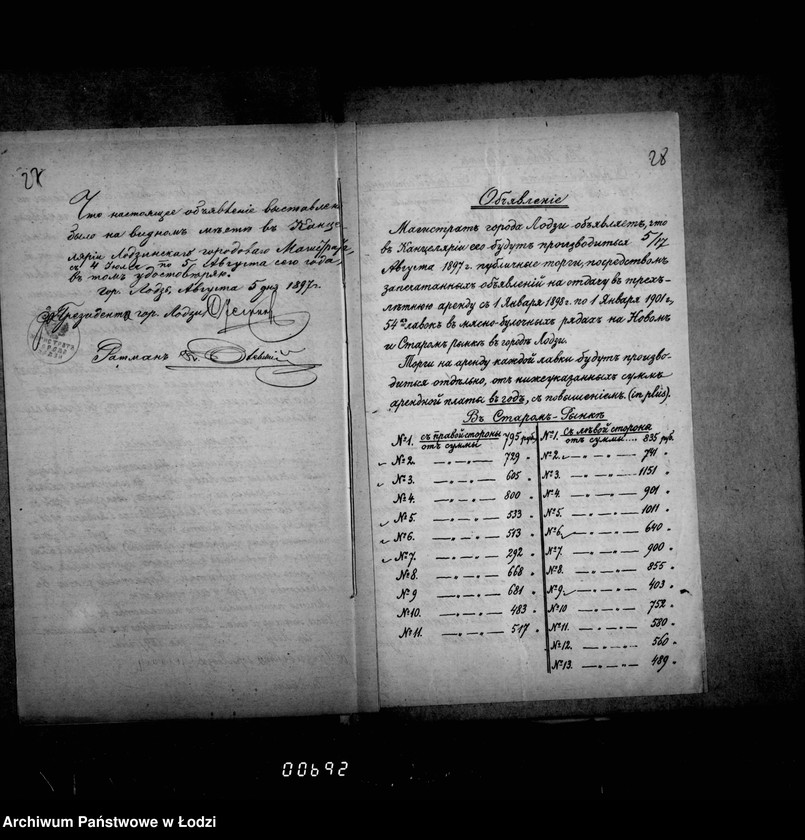 27
Что настоящее объявленіе выставлено
было на видномъ мѣстѣ въ Канце
ляріи Лодзинскаго городоваго Магистрата,
съ 4 Іюля по 5 Августа сего года,
въ томъ удостовѣряю.
гор. Лодзь, Августа 5 дня 1897 г.
Президентъ гор. Лодзи
Ратманъ
28
Объявленіе
Магистратъ города Лодзи объявляетъ, что
въ Канцеляріи его будутъ производиться 5/17
Августа 1897 г. публичные торги, посредствомъ
запечатанныхъ объявленій на отдачу въ трех-
лѣтнюю аренду съ 1 Января 1898 г. по 1 Января 1901 г.,
54хъ лавокъ въ мясно-булочныхъ рядахъ на Новомъ
и Старомъ рынкѣ въ городѣ Лодзи.
Торги на аренду каждой лавки будутъ произво-
диться отдѣльно, отъ нижеуказанныхъ суммъ
арендной платы въ годъ, съ повышеніемъ (in plus).
Въ Старомъ-Рынкѣ
№ 1. съ правой стороны отъ суммы 795 руб.
№ 2. — „ — „ — 729 „
№ 3. — „ — „ — 605 „
№ 4. — „ — „ — 800 „
№ 5. — „ — „ — 533 „
№ 6. — „ — „ — 513 „
№ 7. — „ — „ — 292 „
№ 8. — „ — „ — 668 „
№ 9 — „ — „ — 681 „
№ 10. — „ — „ — 483 „
№ 11. — „ — „ — 517 „
№ 1. Съ лѣвой стороны отъ суммы.... 835 руб.
№ 2. — „ — „ — 741 „
№ 3. — „ — „ — 1151 „
№ 4. — „ — „ — 901 „
№ 5. — „ — „ — 1011 „
№ 6. — „ — „ — 640 „
№ 7. — „ — „ — 900 „
№ 8. — „ — „ — 855 „
№ 9. — „ — „ — 403 „
№ 10 — „ — „ — 752 „
№ 11. — „ — „ — 580 „
№ 12. — „ — „ — 560 „
№ 13. — „ — „ — 489 „
00692
Archiwum Państwowe w Łodzi